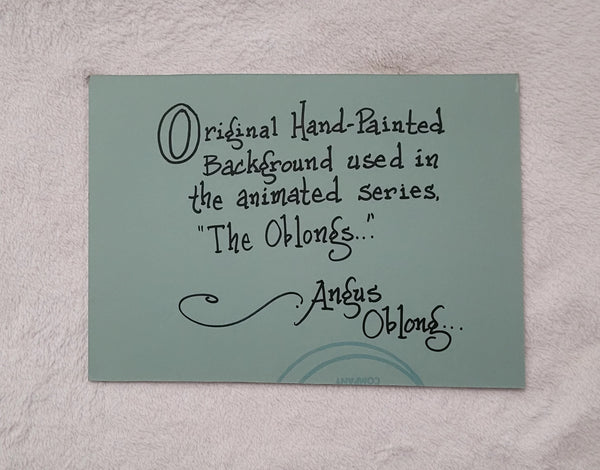 Original Hand-Painted
Background used in
the animated series,
"The Oblongs..."
Angus
Oblong...
COMPANY